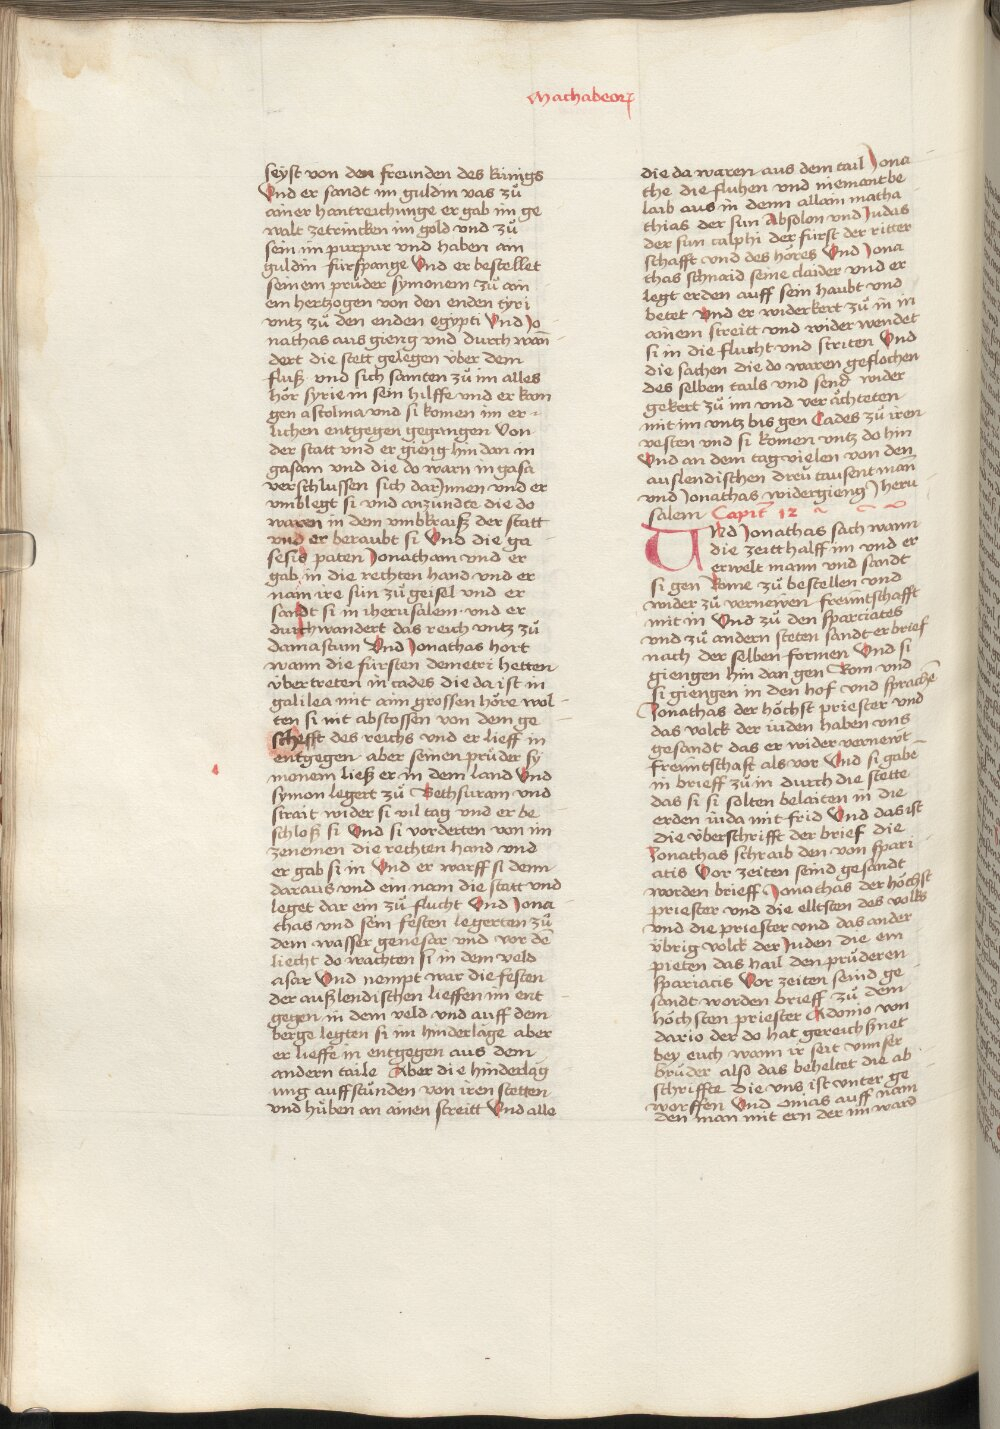 Machabeorum
seyst von den freunden des künigs
Vnd er sandt im guldin vas zů
ainer hantreichunge er gab im ge
walt zetrincken im gold vnd zů
sein im purpur vnd haben ain
guldin fürspange Vnd er bestellet
seinem průder symonem zů ain
em hertzogen von den enden tyri
vntz zů den enden egypti Vnd Jo
nathas aus gieng vnd durch wan̄
dert die stett gelegen vber dem
fluß vnd sich samten zů im alles
hör syrie in sein hilffe vnd er kam
gen astolma vnd si komen im er
lichen entgegen gegangen Von
der statt vnd er gieng hin dan in
gasam vnd die do warn in gasa
verschlussen sich dar Jnnen vnd er
vmblegt si vnd anzündte die do
waren in dem vmbkraiß der statt
vnd er beraubt si Vnd die ga
sesis paten Jonatham vnd er
gab in die rechten hand vnd er
nam ire sün zů geisel vnd er
sandt si in iherusalem vnd er
durchwandert das reich vntz zů
damascum Vnd Jonathas hort
wann die fürsten demetri hetten
vbertreten in cades die da ist in
galilea mit aim grossen höre wol
ten si mit abstossen von dem ge
schefft des reichs vnd er lieff in
entgegen aber seinen průder sy
monem ließ er in dem land Vnd
symon legert zů Bethsuram vnd
strait wider si vil tag vnd er be
schloß si Vnd si vorderten von im
zenemen die rechten hand vnd
er gab si in Vnd er warff si denn
daraus vnd ein nam die statt vnd
leget dar ein zů flucht Vnd Jona
thas vnd sein festen legerten zů
dem wasser genesar vnd vor dē
liecht do wachten si in dem veld
asar Vnd nempt war die festen
der außlendischen lieffen im ent
gegen in dem veld vnd auff dem
berge legten si im hinderlage aber
er lieffe in entgegen aus dem
andern taile Aber die hinderlag
ung auffstůnden von iren stetten
vnd hůben an ainen streitt Vnd alle
die da waren aus dem tail Jona
the die fluhen vnd niemant be
laib aus in denn allain matha
thias der sun Absolon vnd Judas
der sun calphi der fürst der ritter
schafft vnd des höres Vnd Jona
thas schnaid seine claider vnd er
legt erden auff sein haubt vnd
betet Vnd er widerkert zů in in
ainem streitt vnd wider wendet
si in die flucht vnd striten Vnd
die sachen die do waren geflochen
des selben tails vnd send wider
gekert zů im vnd ver ächteten
mit im vntz bis gen Cades zů iren
vesten vnd si komen vntz do hin
Vnd an dem tag vielen von den
auslendischen dreü tausent man̄
vnd Jonathas widergieng Jheru
salem Capit 12
VNd Jonathas sach wann
die zeitt halff im vnd er
erwelt mann vnd sandt
si gen Rome zů bestellen vnd
wider zů vernewen freuntschafft
mit in Vnd zů den sparciates
vnd zů andern steten sandt er brief
nach der selben formen Vnd si
giengen hin dan gen Rom vnd
si giengen in den hof vnd sprachē
Jonathas der höchst priester vnd
das volck der iuden haben vns
gesandt das er wider vernewt
freuntschaft als vor Vnd si gabē
in brieff zů in durch die stette
das si si solten belaiten in die
erden iuda mit frid Vnd das ist
die vberschrifft der brief die
Jonathas schraib den von spari
atis Vor zeiten seind gesandt
worden brieff Jonathas der höchst
priester vnd die elltsten des volks
vnd die priester vnd das ander
vbrig volck der Juden die em
pieten das hail den prüderen
spariatis Vor zeiten seind ge
sandt worden brieff zů dem
höchsten priester Adonio von
dario der do hat gereichßnet
bey euch wann ir seit vnnser
brüder also das beheltet die ab
schriffte die vns ist vnter ge
worffen Vnd onias auff nam
den man mit ern der im ward